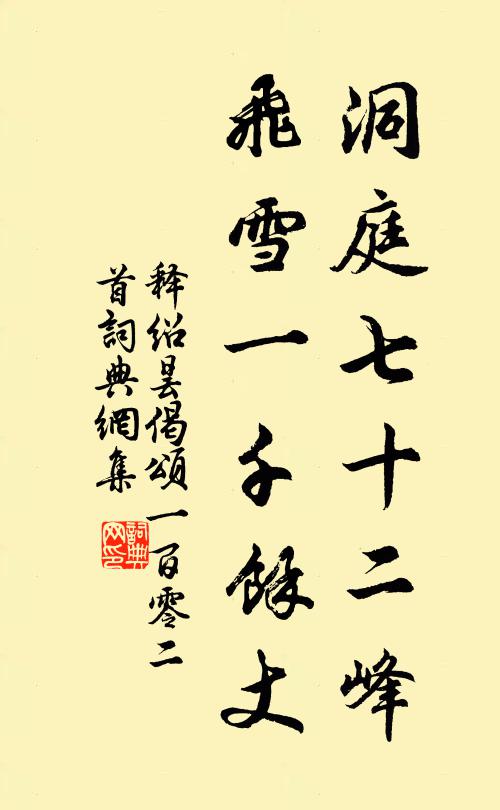 洞庭七十二峰
飛雪一千餘丈
释紹曇偈頌一百零二
首詞典網集
詞典
网印